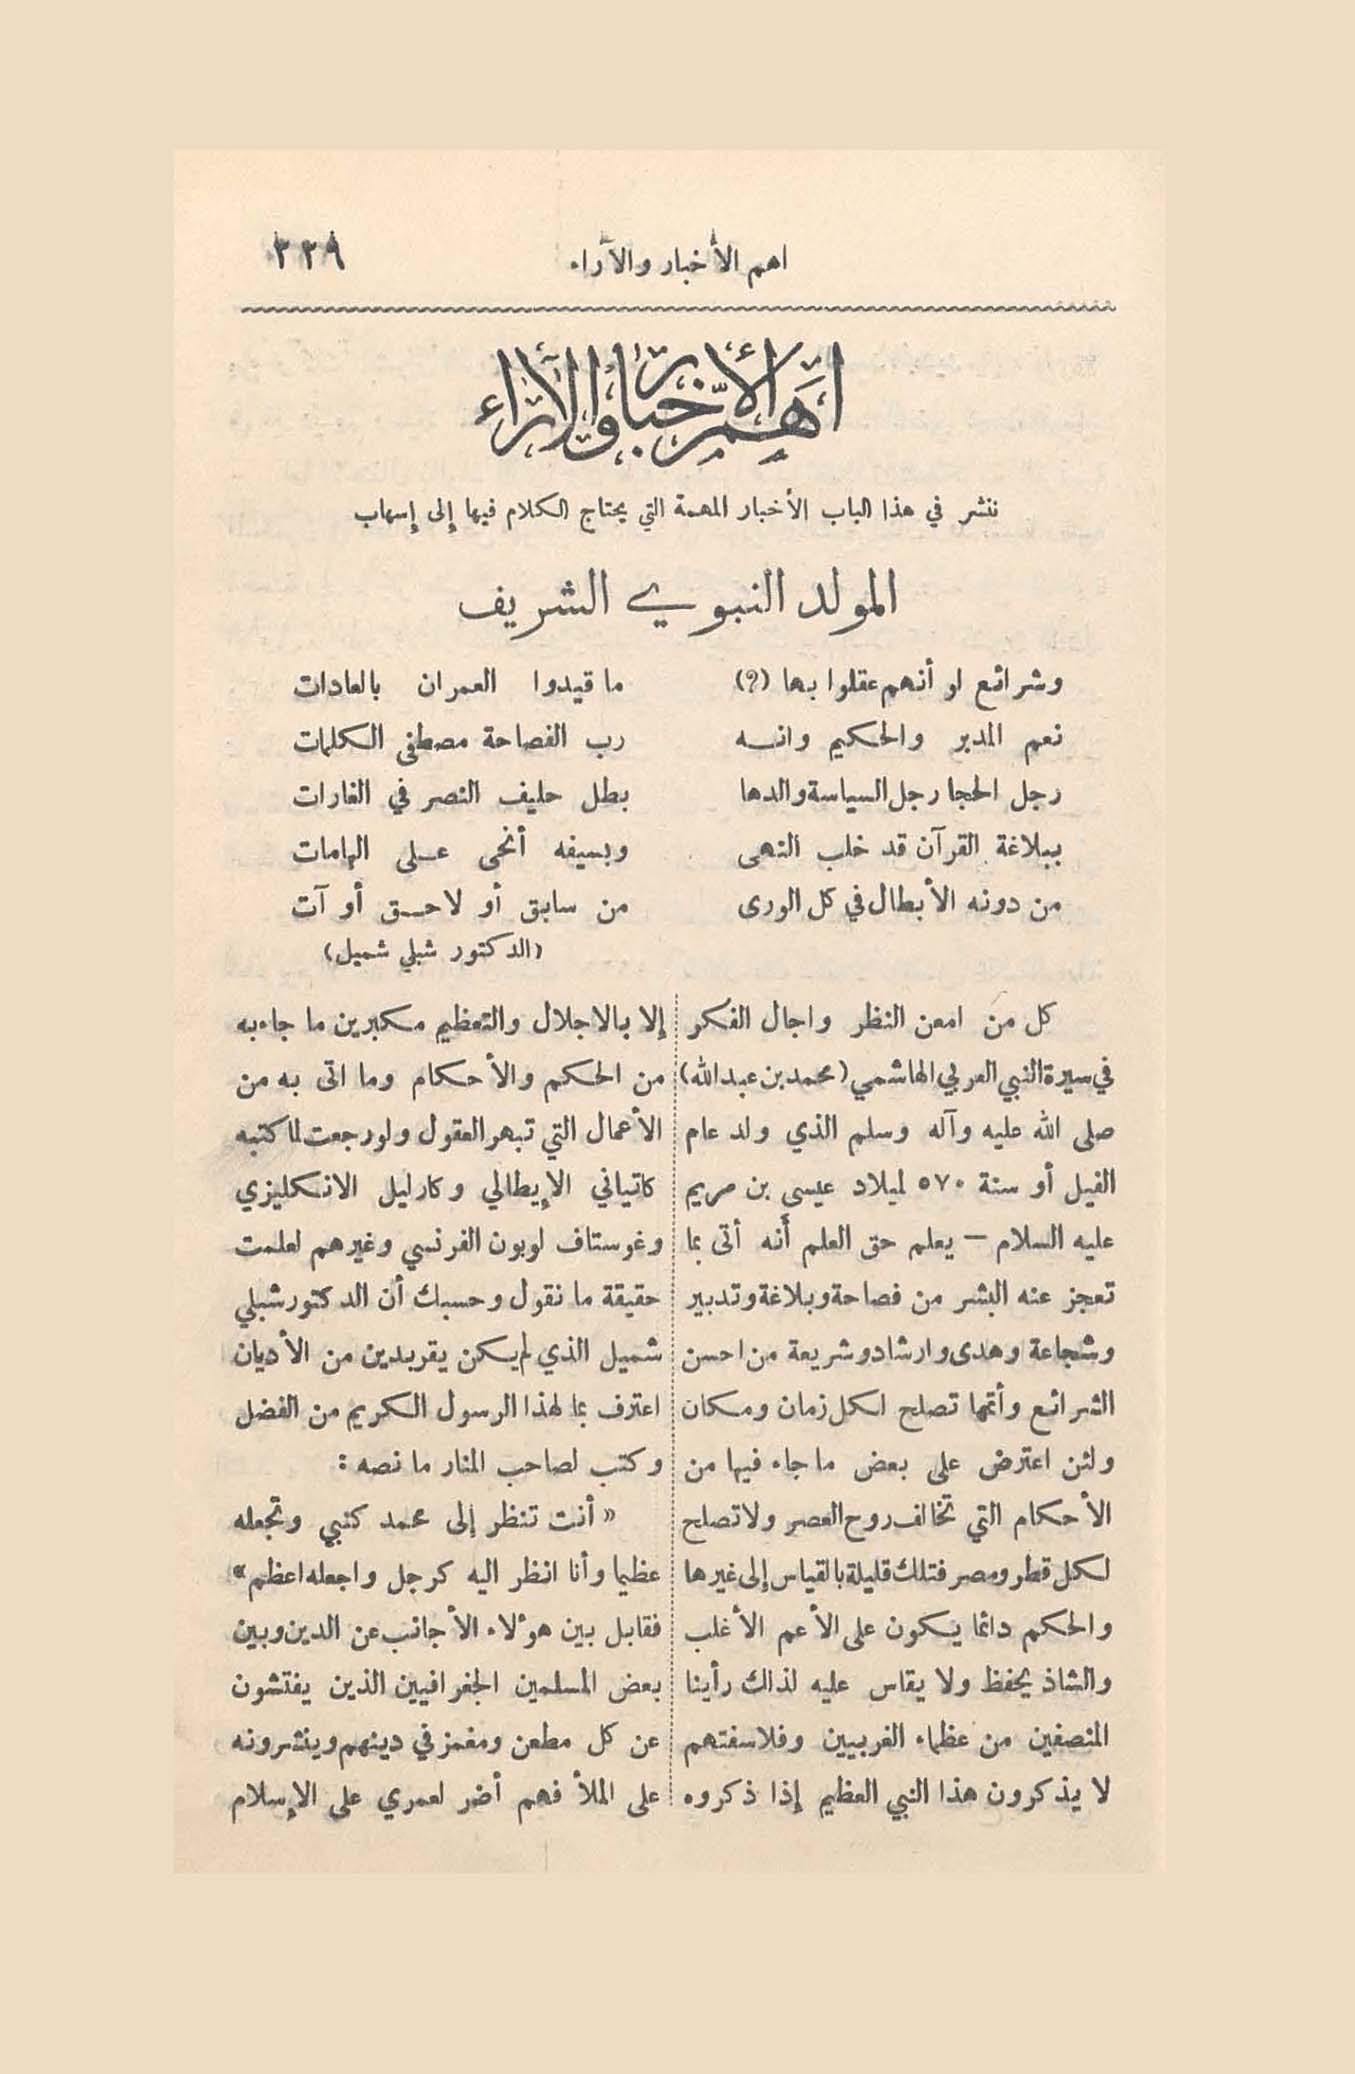 اهم الأخبار والآراء
٣٢٩
اهم الأخبار والآراء
ننشر في هذا الباب الأخبار المهمة التي يحتاج الكلام فيها إلى إسهاب
المولد النبوي الشريف
وشرائع لو أنهم عقلوا بها (؟) ما قيدوا العمران بالعادات
نعم المدبر والحكيم وانه رب الفصاحة مصطفى الكلمات
رجل الحجا رجل السياسة والدها بطل حليف النصر في الغارات
ببلاغة القرآن قد خلب النهى وبسيفه أنحى على الهامات
من دونه الأبطال في كل الورى من سابق أو لاحق أو آت
(الدكتور شبلي شميل)
كل من امعن النظر واجال الفكر
في سيرة النبي العربي الهاشمي (محمد بن عبدالله)
صلى الله عليه وآله وسلم الذي ولد عام
الفيل أو سنة ٥٧٠ لميلاد عيسى بن مريم
عليه السلام — يعلم حق العلم أنه أتى بما
تعجز عنه البشر من فصاحة وبلاغة وتدبير
وشجاعة وهدى وارشاد وشريعة من احسن
الشرائع وأتمها تصلح لكل زمان ومكان
ولئن اعترض على بعض ما جاء فيها من
الأحكام التي تخالف روح العصر ولا تصلح
لكل قطر ومصر فتلك قليلة بالقياس إلى غيرها
والحكم دائما يكون على الأعم الأغلب
والشاذ يحفظ ولا يقاس عليه لذلك رأينا
المنصفين من عظماء الغربيين وفلاسفتهم
لا يذكرون هذا النبي العظيم إذا ذكروه
إلا بالاجلال والتعظيم مكبرين ما جاء به
من الحكم والأحكام وما اتى به من
الأعمال التي تبهر العقول ولو رجعت لما كتبه
كاتياني الإيطالي وكارليل الانكليزي
وغوستاف لوبون الفرنسي وغيرهم لعلمت
حقيقة ما نقول وحسبك أن الدكتور شبلي
شميل الذي لم يكن يقر بدين من الأديان
اعترف بما لهذا الرسول الكريم من الفضل
وكتب لصاحب المنار ما نصه :
« أنت تنظر إلى محمد كنبي وتجعله
عظيما وأنا انظر اليه كرجل واجعله اعظم »
فقابل بين هؤلاء الأجانب عن الدين وبين
بعض المسلمين الجغرافيين الذين يفتشون
عن كل مطعن ومغمز في دينهم وينشرونه
على الملأ فهم أضر لعمري على الإسلام